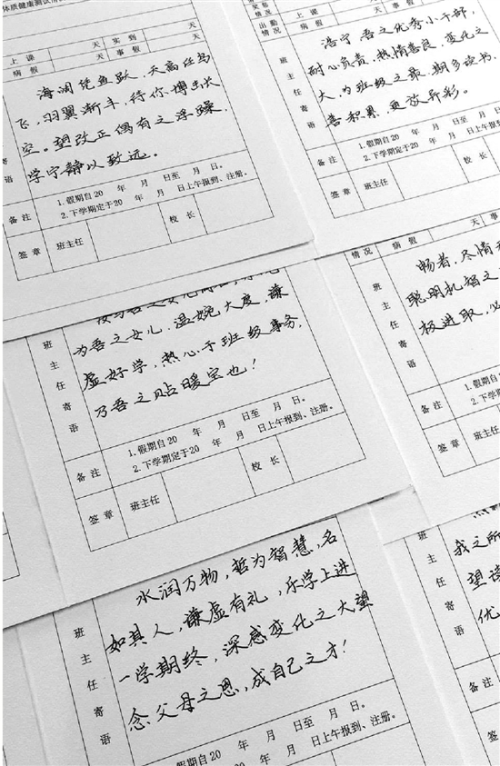 体质健康测试
上课 天 实到 天
病假 天 事假
海阔凭鱼跃，天高任鸟
飞，羽翼渐丰，待你博击长
空。望改正偶有之浮躁，
学宁静以致远。
寄语
备注
1.假期自20 年 月 日至 月 日。
2.下学期定于20 年 月 日上午报到、注册。
签章 班主任 校长
情况
出勤情况
上课
病假 天 事假
浩宁，吾之优秀小干部，
耐心负责，热情善良，变化之
大，为班级之最，期多读书，
善积累，更放异彩。
班主任寄语
备注
1.假期自20 年 月 日至 月 日。
2.下学期定于20 年 月 日上午报到、注册。
签章 班主任 校长
为吾之女儿，温婉大度，谦
虚好学，热心于班级事务，
乃吾之贴暖宝也！
班主任寄语
备注
1.假期自20 年 月 日至 月 日。
2.下学期定于20 年 月 日上午报到、注册。
签章 班主任 校长
情况 病假 天 事
畅者，尽情
聪明机智之
极进取，必
班主任寄语
备注
1.假期自20
2.下学期定于20
签章 班主任
水润万物，哲为智慧，名
如其人，谦虚有礼，乐学上进
一学期终，深感变化之大望
念父母之恩，成自己之才！
班主任寄语
备注
1.假期自20 年 月 日至 月 日。
2.下学期定于20 年 月 日上午报到、注册。
我之所
望
优
班主任寄语